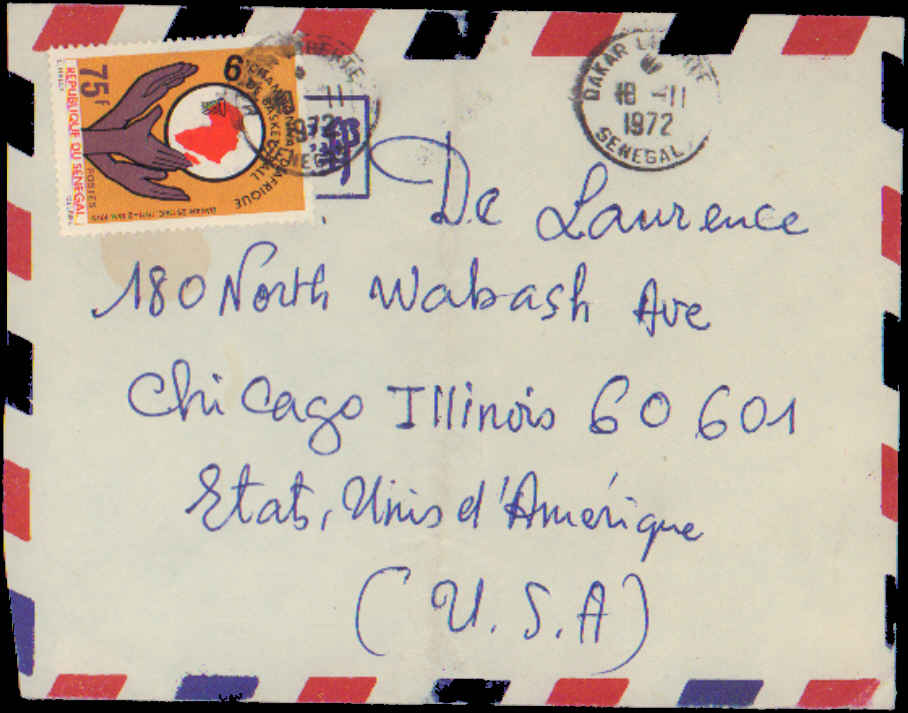 75f
REPUBLIQUE DU SENEGAL
POSTES
6
D'AFRIQUE
DE BASKET-BALL
1972
DAKAR LIBERTE
18 -11
1972
SENEGAL
De Laurence
180 North Wabash Ave
Chicago Illinois 60 601
Etats, Unis d'Amérique
(U.S.A)